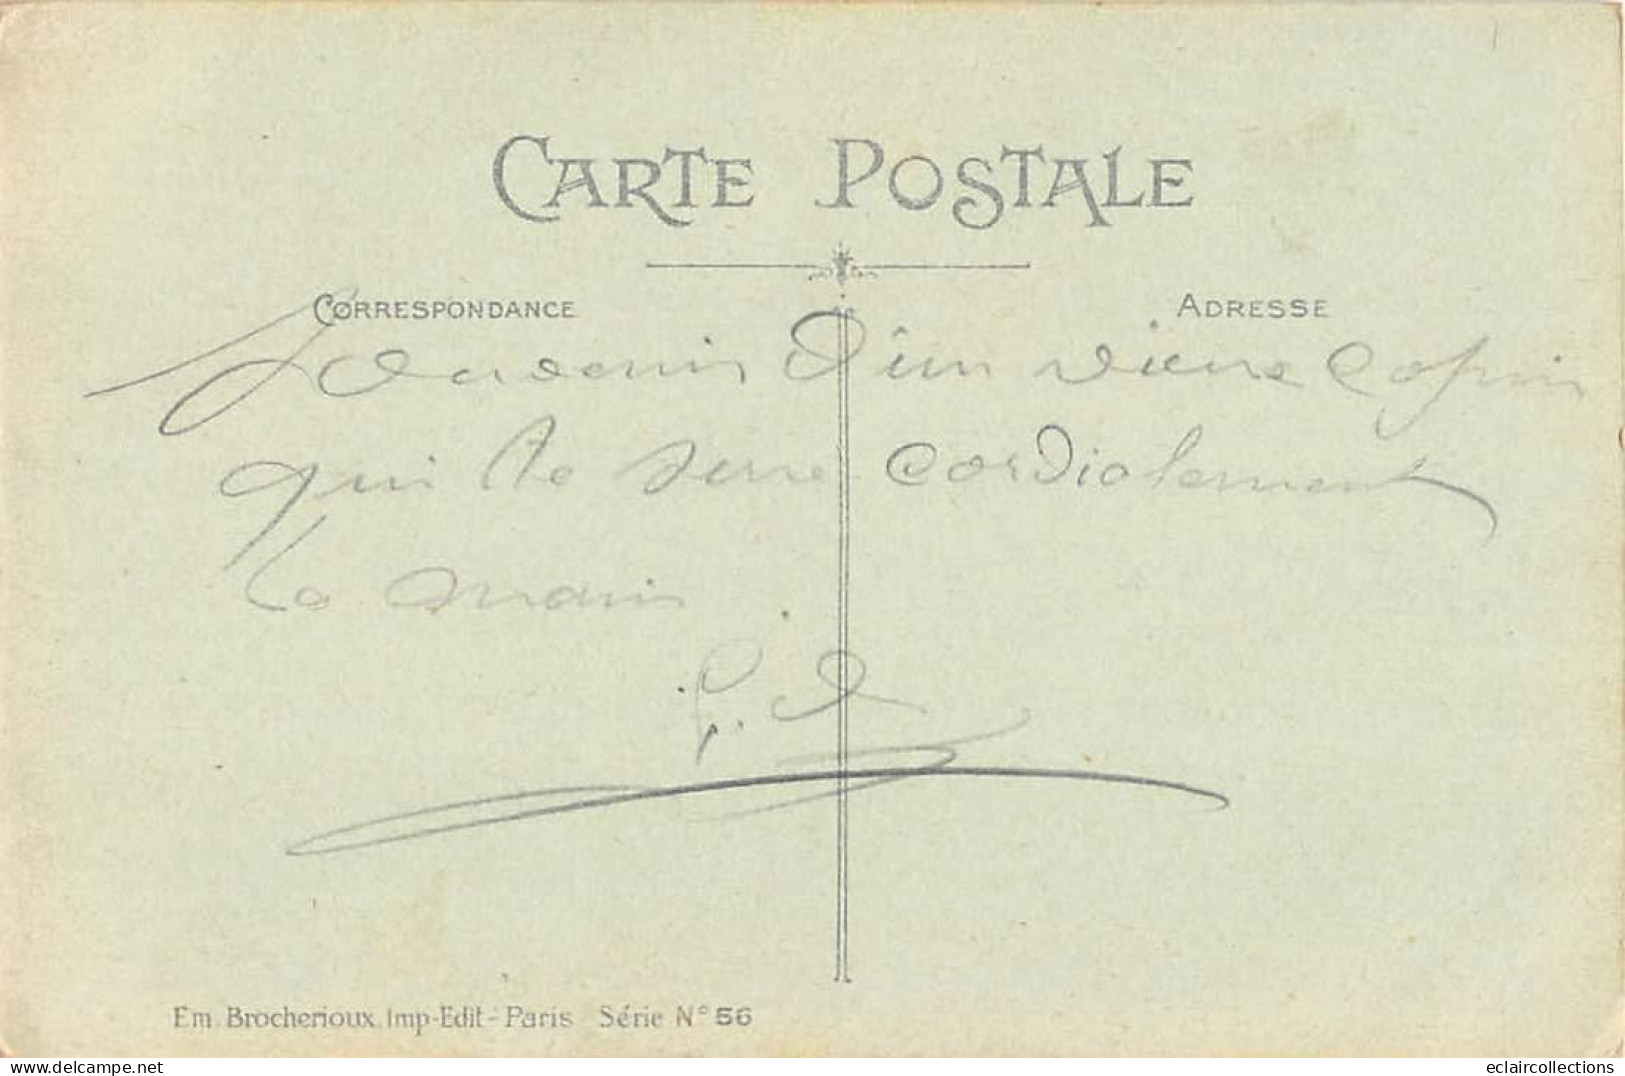 CARTE POSTALE
CORRESPONDANCE
ADRESSE
Souvenir d'un vieux Copin
qui te serre cordialement
la main
Em. Brocherioux. Imp-Edit-Paris Série N° 56
delcampe.net
eclaircollections